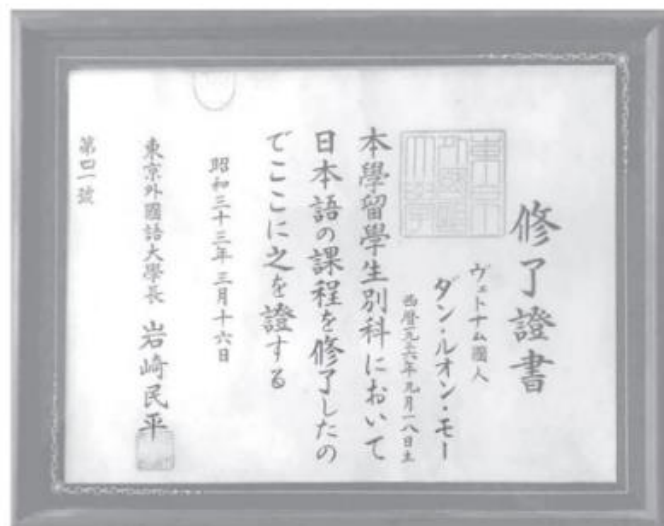 修了證書
ヴェトナム國人
ダン・ルオン・モー
西暦一九三六年九月一八日生
本學留學生別科において
日本語の課程を修了したの
でここに之を證する
昭和三十三年三月十六日
東京外國語大學長 岩崎民平
第四一號